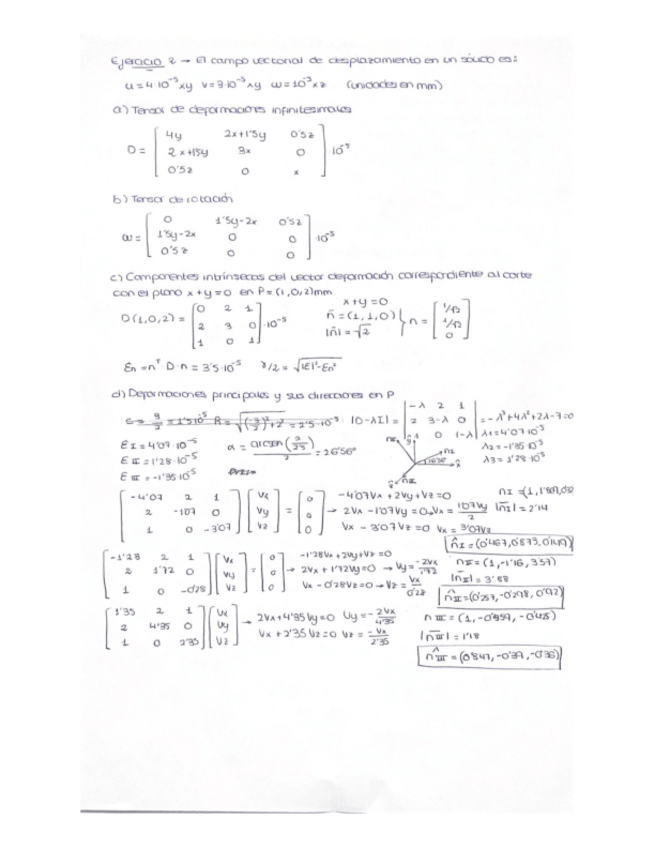 Ejercicio 2 → El campo vectorial de desplazamiento en un sólido es:
u=4·10⁻⁵xy v=3·10⁻⁵xy w=10⁻⁵xz (unidades en mm)
a) Tensor de deformaciones infinitesimales
D = [ 4y 2x+1'5y 0'5z
2x+1'5y 3x 0
0'5z 0 x ] ·10⁻⁵
b) Tensor de rotación
ω = [ 0 1'5y-2x 0'5z
1'5y-2x 0 0
0'5z 0 0 ] ·10⁻⁵
c) Componentes intrínsecas del vector deformación correspondiente al corte
con el plano x+y=0 en P=(1,0,2)mm
x+y=0
D(1,0,2) = [ 0 2 1
2 3 0
1 0 1 ] ·10⁻⁵
n̄=(1,1,0)
|n̄|=√2 } n = [ 1/√2
1/√2
0 ]
εn=nᵀ·D·n=3'5·10⁻⁵ γ/2=√|ε|²-εn²
d) Deformaciones principales y sus direcciones en P
|D-λI| = | -λ 2 1
2 3-λ 0
1 0 1-λ | = -λ³+4λ²+2λ-7=0
λ1=4'07·10⁻⁵
λ2=-1'35·10⁻⁵
λ3=1'28·10⁻⁵
εI=4'07·10⁻⁵
εII=1'28·10⁻⁵
εIII=-1'35·10⁻⁵
= 26'56º
[ -4'07 2 1
2 -1'07 0
1 0 -3'07 ] [ Vx
Vy
Vz ] = [ 0
0
0 ]
-4'07Vx+2Vy+Vz=0
→ 2Vx-1'07Vy=0 Vx=1'07Vy/2
Vx-3'07Vz=0 Vx=3'07Vz
|n̄I|=2'14
n̂I=(0'467,0'873,0'149)
[ -1'28 2 1
2 1'72 0
1 0 -0'28 ] [ Vx
Vy
Vz ] = [ 0
0
0 ]
-1'28Vx+2Vy+Vz=0
→ 2Vx+1'72Vy=0 → Vy=-2Vx/1'72
Vx-0'28Vz=0 → Vz=Vx/0'28
nII=(1,-1'16,3'57)
|nII|=3'88
n̂II=(0'257,-0'298,0'92)
[ 1'35 2 1
2 4'35 0
1 0 2'35 ] [ Vx
Vy
Vz ]
→ 2Vx+4'35Vy=0 Vy=-2Vx/4'35
Vx+2'35Vz=0 Vz=-Vx/2'35
nIII=(1,-0'459,-0'425)
|n̄III|=1'18
n̂III=(0'847,-0'39,-0'36)